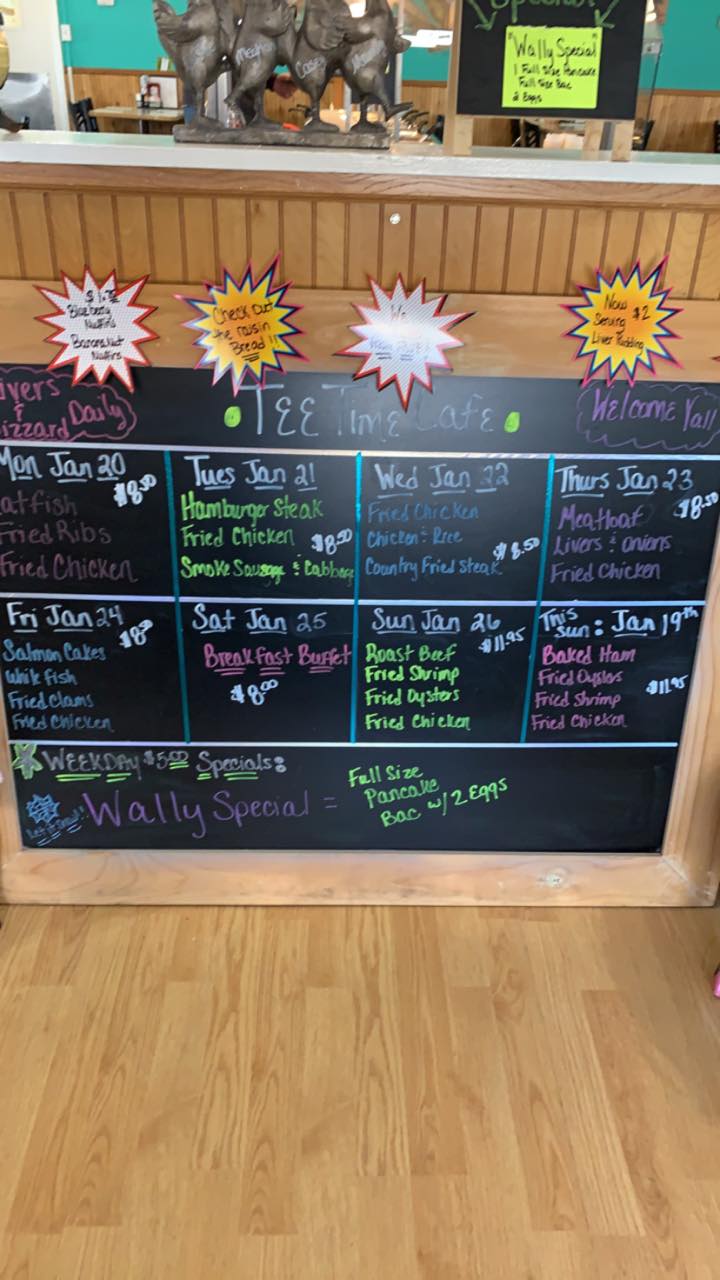 Special
"Wally Special"
1 Full Size Pancake
Full Size Bac
2 Eggs
Meghan
Casey
Blueberry
Muffins
Banana Nut
Muffins
Check Out
the raisin
Bread!!
We
Now $2
Serving
Liver Pudding
ivers
&
izzard Daily
TEE Time Cafe
Welcome Yall
Mon Jan 20
$8.50
atfish
Fried Ribs
Fried Chicken
Tues Jan 21
Hamburger Steak
Fried Chicken $8.50
Smoke Sausage & Cabbage
Wed Jan 22
Fried Chicken
Chicken & Rice
$8.50
Country Fried Steak
Thurs Jan 23
$8.50
Meatloaf
Livers & onions
Fried Chicken
Fri Jan 24
Salmon Cakes
White fish
Fried Clams
Fried Chicken
Sat Jan 25
Breakfast Buffet
$8.00
Sun Jan 26
$11.95
Roast Beef
Fried Shrimp
Fried Oysters
Fried Chicken
This
Sun: Jan 19th
Baked Ham
Fried Oysters
$11.95
Fried Shrimp
Fried Chicken
WEEKDAY $5.00 Specials:
Let it Snow!
Wally Special =
Full Size
Pancake
Bac w/2 Eggs